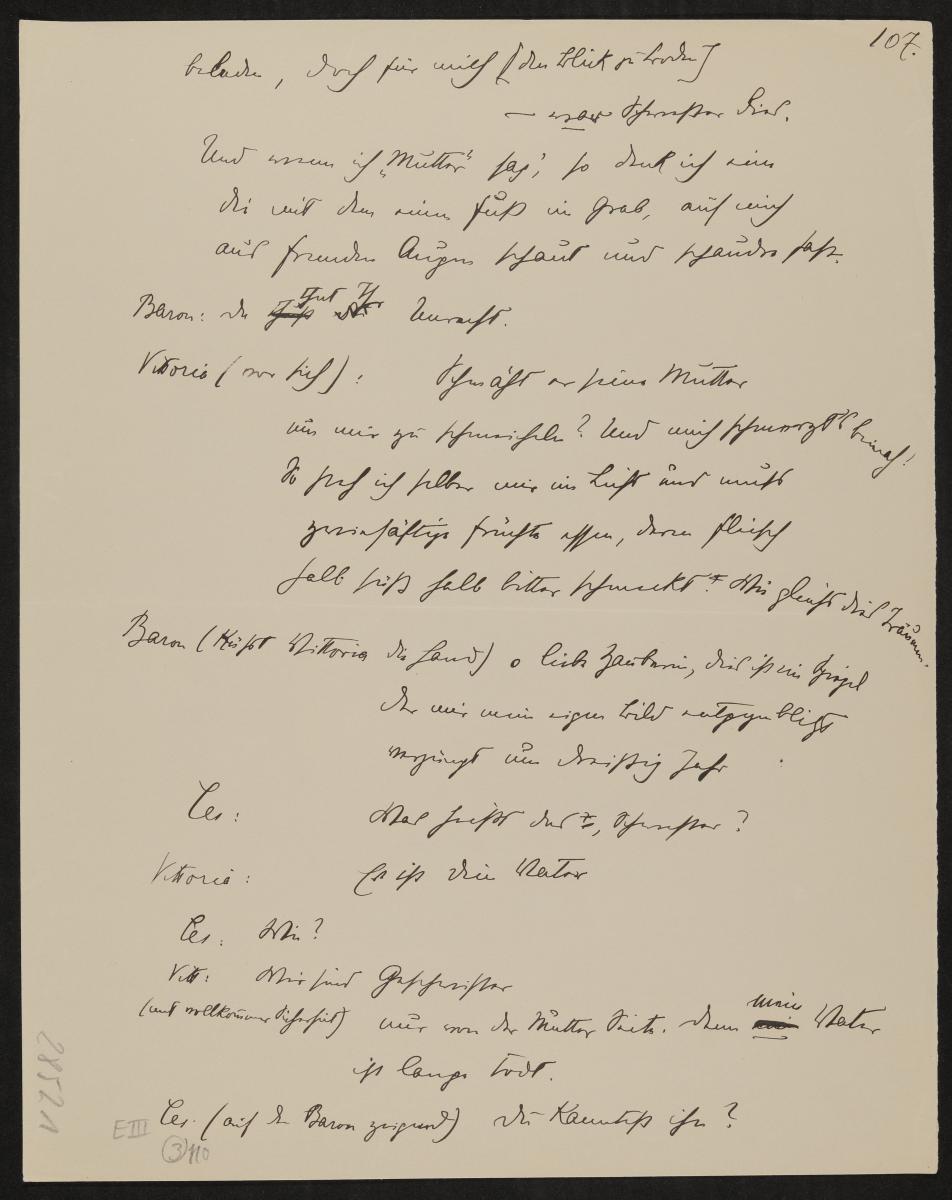 107.
beladen, doch für mich [den Blick zu Boden]
— war Schwester dies.
Und wenn ich „Mutter“ sag', so denk ich eine
die mit dem einen Fuß im Grab, auf mich
aus fremden Augen schaut und schaudre fast.
Baron: du thut Ihr Unrecht.
Vittoria (vor sich): Schmäht er seine Mutter
um mir zu schmeicheln? Und mich schmerzt's beinah!
So steh ich selber mir im Licht und muss
zwiespältige Früchte essen, deren Fleisch
halb süß halb bitter schmeckt. Wie gleicht dies Träumen.
Baron (küsst Vittoria die Hand) o liebe Zauberin, dies ist ein Spiegel
der mir mein eigen Bild
verjüngt um dreissig Jahr
Ces: Was heisst das, Schwester?
Vittoria: Er ist dein Vater
Ces: Wie?
Vitt: Wir sind Geschwister
(mit vollkommner Sicherheit) nur von der Mutter Seite. Denn mein Vater
ist lange todt.
Ces. (auf den Baron zeigend) du kanntest ihn?
28521
E III
3 110